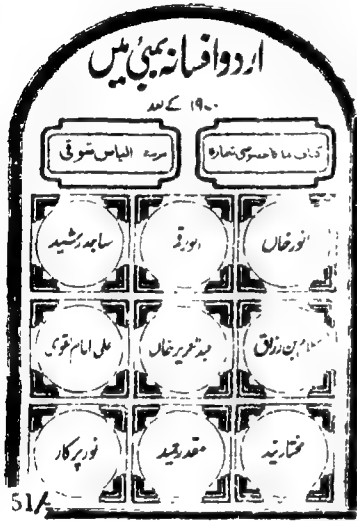 اردو افسانہ بمبئی میں
۱۹۷۰ کے بعد
کتاب نما کا خصوصی شمارہ
مرتبہ الیاس شوقی
انور خاں
انور قمر
ساجد رشید
سلام بن رزاق
علی امام نقوی
مقدر حمید
نور پرکار
51/-